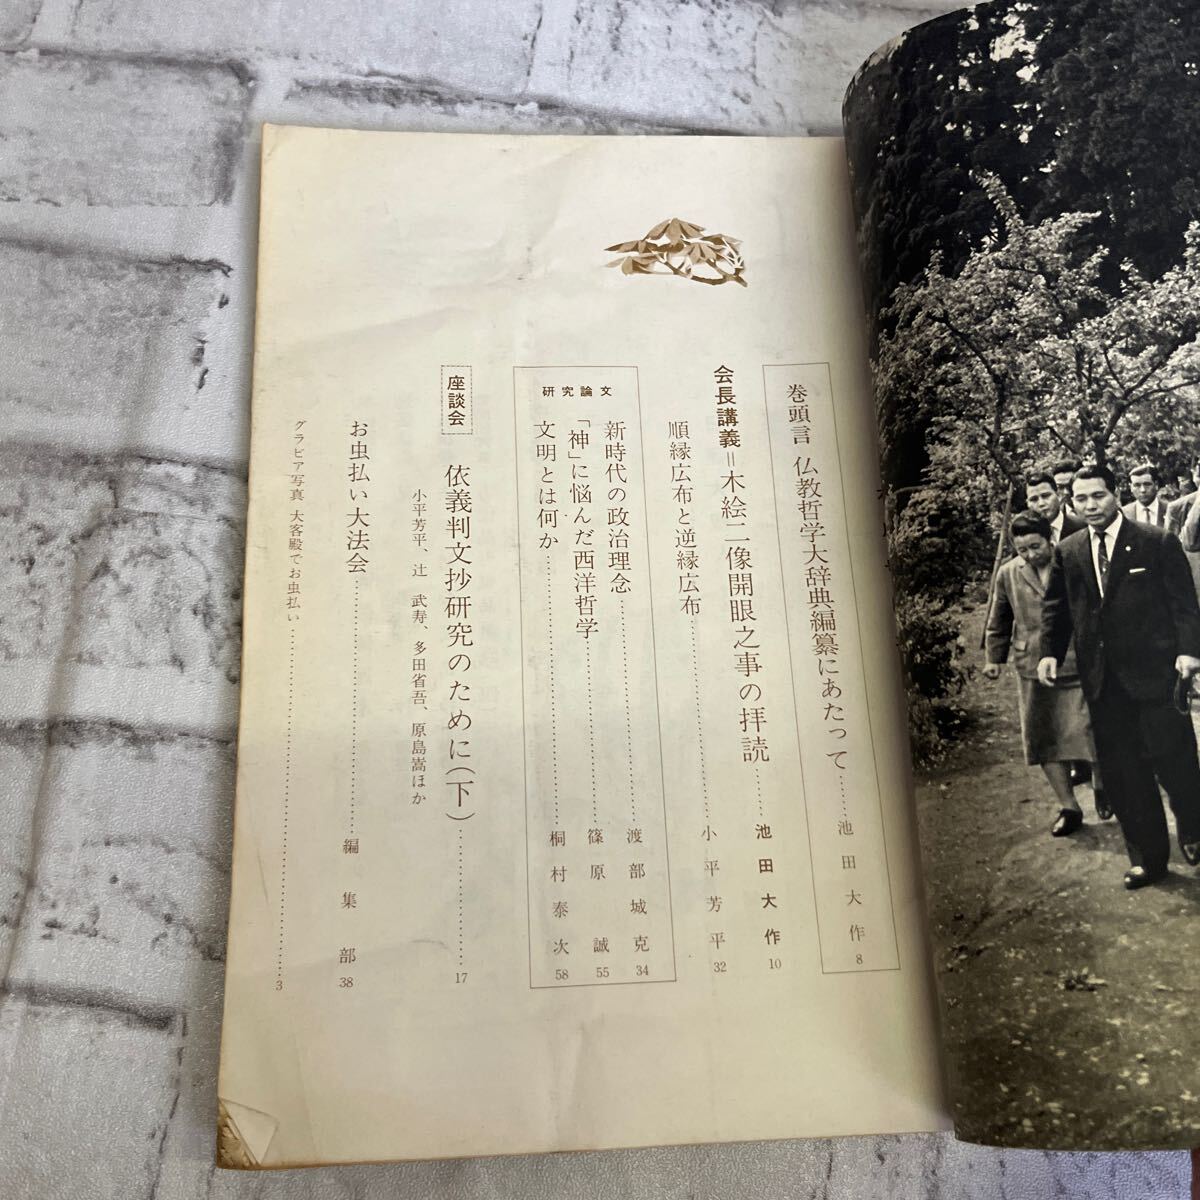 巻頭言 仏教哲学大辞典編纂にあたって……池田大作 8
会長講義=木絵二像開眼之事の拝読……池田大作 10
順縁広布と逆縁広布……小平芳平 32
研究論文
新時代の政治理念……渡部城克 34
「神」に悩んだ西洋哲学……篠原 誠 55
文明とは何か……桐村泰次 58
座談会
依義判文抄研究のために(下)……17
小平芳平、辻 武寿、多田省吾、原島嵩ほか
お虫払い大法会……編集部 38
グラビア写真 大客殿でお虫払い……3